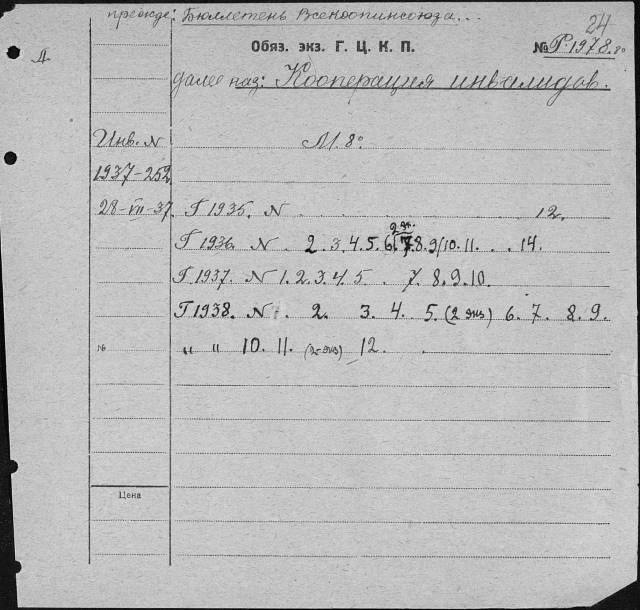 прежде: Бюллетень Всекоопинсоюза...
24
Обяз. экз. Г. Ц. К. П. № Р-1978.80
Д
далее наз: Кооперация инвалидов.
Инв. N М. 8º
1937-252
28-VII-37. Г 1935. N . . . . . 12.
2 эк.
Г 1936. N . 2. 3. 4. 5. 6. 7. 8. 9/10. 11. . . 14.
Г 1937. N 1. 2. 3. 4. 5 . 7. 8. 9. 10.
Г 1938. N 2. 3. 4. 5. (2 экз) 6. 7. 8. 9.
№ „ „ 10. 11. (2 экз) 12. .
Цена